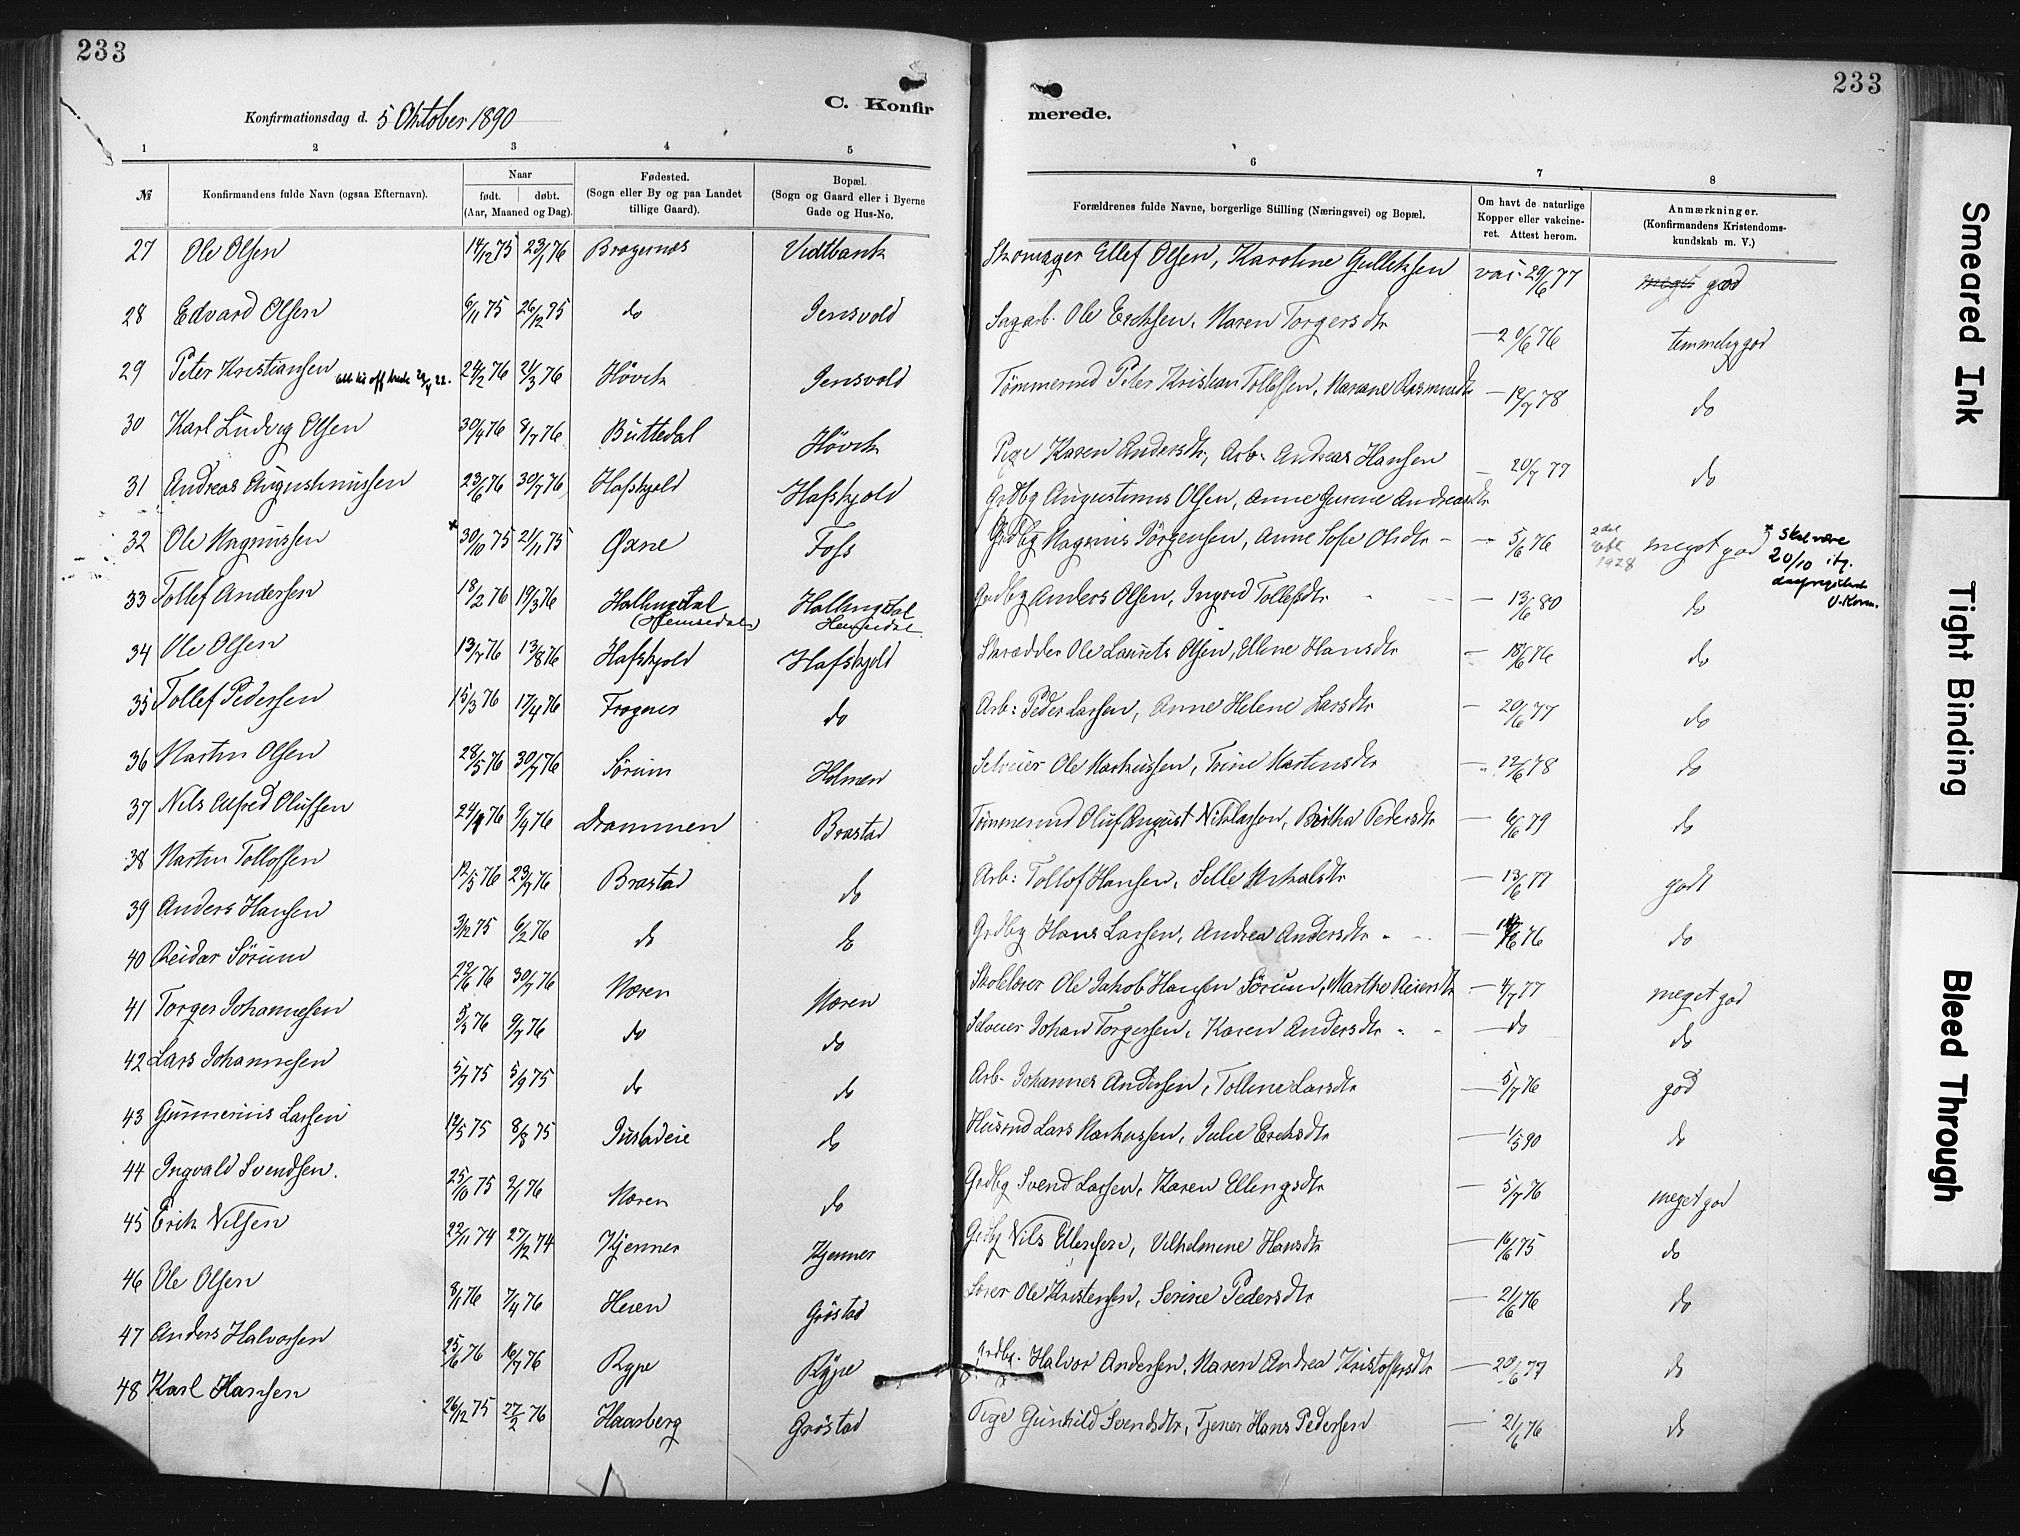 233
233
Konfirmationsdag d. 5 Oktober 1890
C. Konfir
merede.
1 2 3 4 5 6 7 8
№
Konfirmandens fulde Navn (ogsaa Efternavn).
Naar
født. døbt.
(Aar, Maaned og Dag).
Fødested.
(Sogn eller By og paa Landet
tillige Gaard).
Bopæl.
(Sogn og Gaard eller i Byerne
Gade og Hus-No.
Forældrenes fulde Navne, borgerlige Stilling (Næringsvei) og Bopæl.
Om havt de naturlige
Kopper eller vakcine-
ret. Attest herom.
Anmærkninger.
(Konfirmandens Kristendoms-
kundskab m. V.)
27 Ole Olsen 14/12 75 23/1 76 Bragernæs Vidtbank Skomager Ellef Olsen, Karoline Gulliksen vac. 29/6 77 meget god
28 Edvard Olsen 6/11 75 26/12 75 do Jensvold Sagarb. Ole Eriksen, Maren Torgersdtr — 20/6 76 temmelig god
29 Peter Kristiansen 24/2 76 21/3 76 Høvik Jensvold Tømmermd Peter Kristian Tollefsen, Mariane Rasmusdtr — 12/7 78 do
30 Karl Ludvig Olsen 30/4 76 8/7 76 Buttedal Høvik Pige Karen Andersdtr, Arb. Andreas Hansen — 20/7 77 do
31 Andreas Augustinussen 23/6 76 30/7 76 Hafskjold Hafskjold Grdbg Augustinus Olsen, Anne Gurine Andreasdtr
32 Ole Magnussen × 30/10 75 21/11 75 Øxne Foss Grdbg Magnus Jørgensen, Anne Sofie Olsdtr — 5/6 76 meget god
× skal være
20/10
33 Tollef Andersen 18/2 76 19/3 76 Hallingdal (Hemsedal) Hallingdal Hemsedal Grdbg Anders Olsen, Ingrid Tollefsdtr — 13/6 80 do
34 Ole Olsen 13/7 76 13/8 76 Hafskjold Hafskjold Skrædder Ole Laurits Olsen, Elline Hansdtr — 18/6 76 do
35 Tollef Pedersen 15/3 76 17/4 76 Frogner do Arb: Peder Larsen, Anne Helene Larsdtr — 20/6 77 do
36 Martin Olsen 28/5 76 30/7 76 Sørum Holmen Selveier Ole Markussen, Trine Martinsdtr — 12/6 78 do
37 Nils Alfred Olufsen 24/1 76 9/4 76 Drammen Brastad Tømmermd Oluf August Niklassen, Birtha Pedersdtr — 6/6 79 do
38 Martin Tollofsen 12/5 76 23/7 76 Brastad do Arb: Tollof Hansen, Sille Mikalsdtr — 13/6 77 godt
39 Anders Hansen 3/12 75 6/2 76 do do Grdbg Hans Larsen, Andrea Andersdtr — 14/6 76 do
40 Reidar Sörum 22/6 76 30/7 76 Møren Møren Skolelærer Ole Jakob Hansen Sörum, Marthe Reiersdtr — 4/7 77 meget god
41 Torger Johannesen 5/3 76 9/7 76 do do Selveier Johan Torgersen, Karen Andersdtr — do do
42 Lars Johannesen 5/7 75 5/9 75 do do Arb. Johannes Andersen, Tolline Larsdtr — 5/7 76 god
43 Gunnerius Larsen 12/5 75 8/8 75 Justadeie do Husmd Lars Markussen, Julie Eriksdtr — 1/5 90 do
44 Ingvald Svendsen. 25/10 75 2/1 76 Møren do Grdbg Svend Larsen, Karen Ellingsdtr — 5/7 76 meget god
45 Erik Nilsen 22/11 74 27/12 74 Kjenner Kjenner Grdbg Nils Ellensen, Vilhelmine Hansdtr — 16/6 75 do
46 Ole Olsen 8/1 76 7/4 76 Heien Grøstad Lærer Ole Kristensen, Serine Pedersdtr — 21/6 76 do
47 Anders Halvorsen 25/6 76 16/7 76 Rype Rype Grdbg. Halvor Andersen, Maren Andrea Kristoffersdtr — 20/6 77 do
48 Karl Hansen 26/12 75 27/2 76 Haasberg Grøstad Pige Gunhild Svendsdtr, Tjener Hans Pedersen — 21/6 76 do
Smeared Ink
Tight Binding
Bleed Through